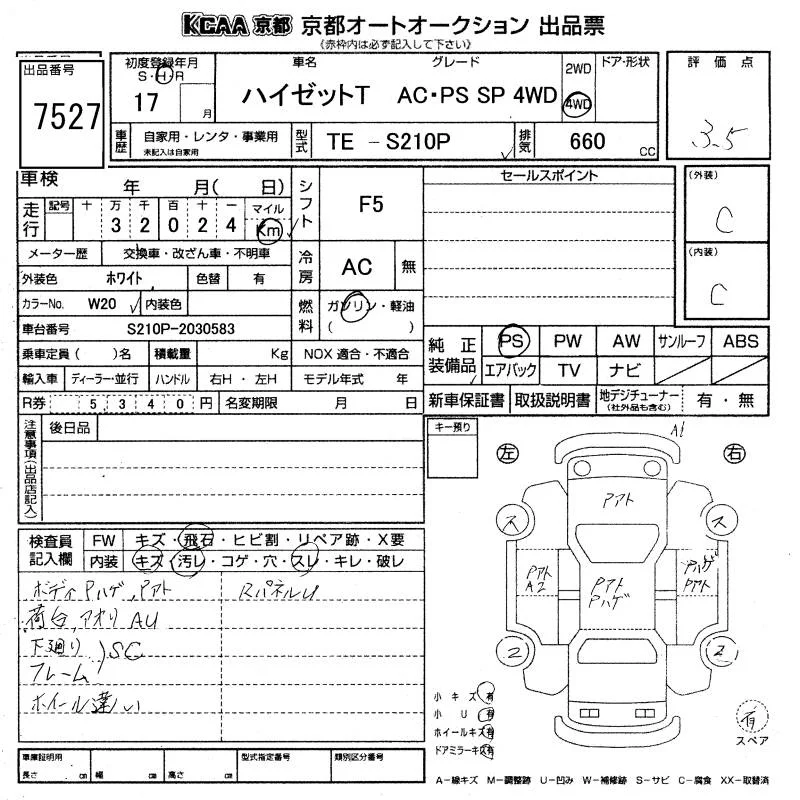 KCAA 京都 京都オートオークション 出品票
《赤枠内は必ず記入して下さい》
出品番号
7527
初度登録年月
S・H・R
17 月
車名 グレード
ハイゼットT AC・PS SP 4WD
2WD
4WD
ドア・形状
評価点
3.5
車歴 自家用・レンタ・事業用
未記入は自家用
型式 TE － S210P
排気 660 CC
車検 年 月( 日)
シフト F5
セールスポイント
(外装)
C
(内装)
C
走行 記号 十 万 千 百 十 一 マイル
3 2 0 2 4 Km
メーター歴 交換車・改ざん車・不明車
冷房 AC 無
外装色 ホワイト 色替 有
カラーNo. W20 内装色
燃料 ガソリン・軽油
( )
車台番号 S210P-2030583
乗車定員( )名 積載量 Kg NOX 適合・不適合
輸入車 ディーラー・並行 ハンドル 右H ・ 左H モデル年式 年
R券 5,340円 名変期限 月 日
純正装備品 PS PW AW サンルーフ ABS
エアバック TV ナビ
新車保証書 取扱説明書 地デジチューナー
(社外品も含む) 有・無
注意事項(出品店記入)
後日品
キー預り
左 右
A1
検査員記入欄
FW キズ・飛石・ヒビ割・リペア跡・X要
内装 キズ・汚レ・コゲ・穴・スレ・キレ・破レ
ボディPハゲ,Pアト RパネルU
荷台,アオリ AU
下廻り )SC
フレーム
ホイール違い
Pアト
ス ス
Pアト
A2
Pアト
Pハゲ
Pハゲ
Pアト
2 2
小キズ 有
小U 有
ホイールキズ 有
ドアミラーキズ 有
有
スペア
車庫証明用
長さ cm 幅 cm 高さ cm
型式指定番号 類別区分番号
A－線キズ M－調整跡 U－凹み W－補修跡 S－サビ C－腐食 XX－取替済